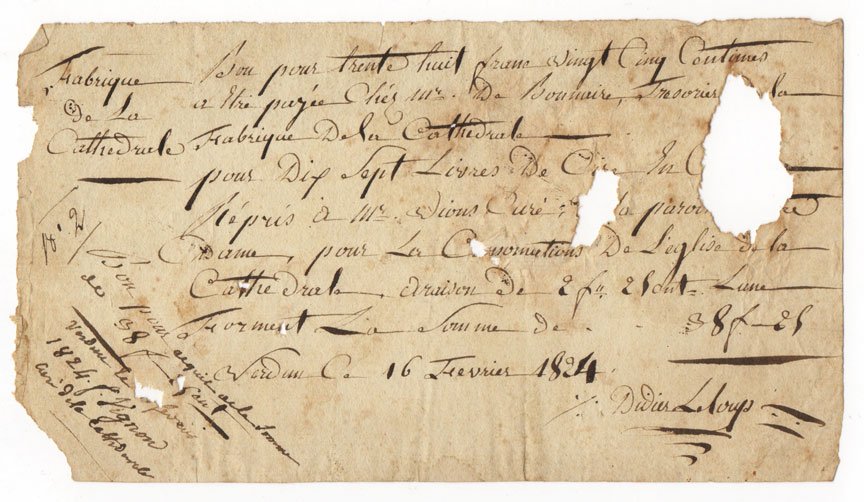 Fabrique
de La
Cathedrale
Bon pour trente huit franc vingt Cinq Centimes
a Etre payée Chéz Mr. De Bonnaire, Tresorier De la
Fabrique De la Cathedrale
pour Dix Sept Livres De Cire En
Répris a Mr. Curé la paroi
Dame, pour La De L'eglise de la
Cathedrale, araison de 2 fr 25 cent Lune
Forment La Somme de 38 f - 25
Verdun Ce 16 Fevrier 1824
Didier Leloup
No. 2
Bon pour acquit de la somme
de 38 f
Verdun le
1824. Vignon
curé de la Cathedrale